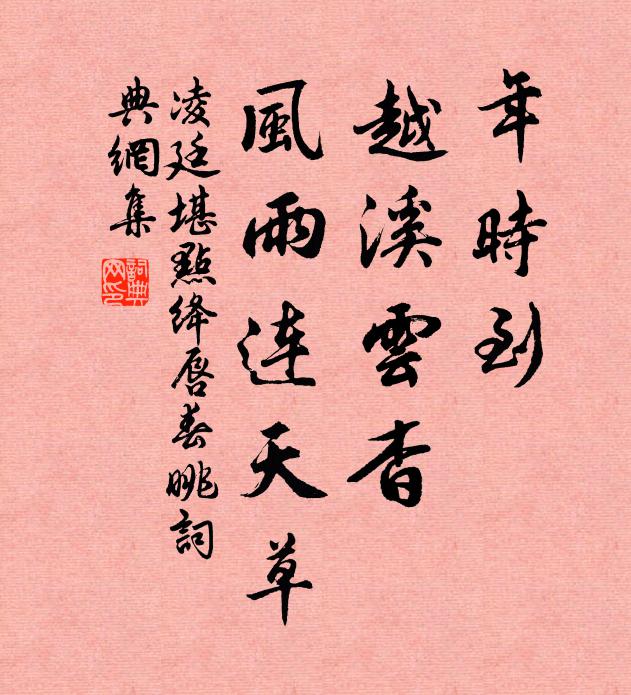 年時到
越溪雲杳
風雨連天草
凌廷堪點絳唇春眺詞
典網集
詞典網印